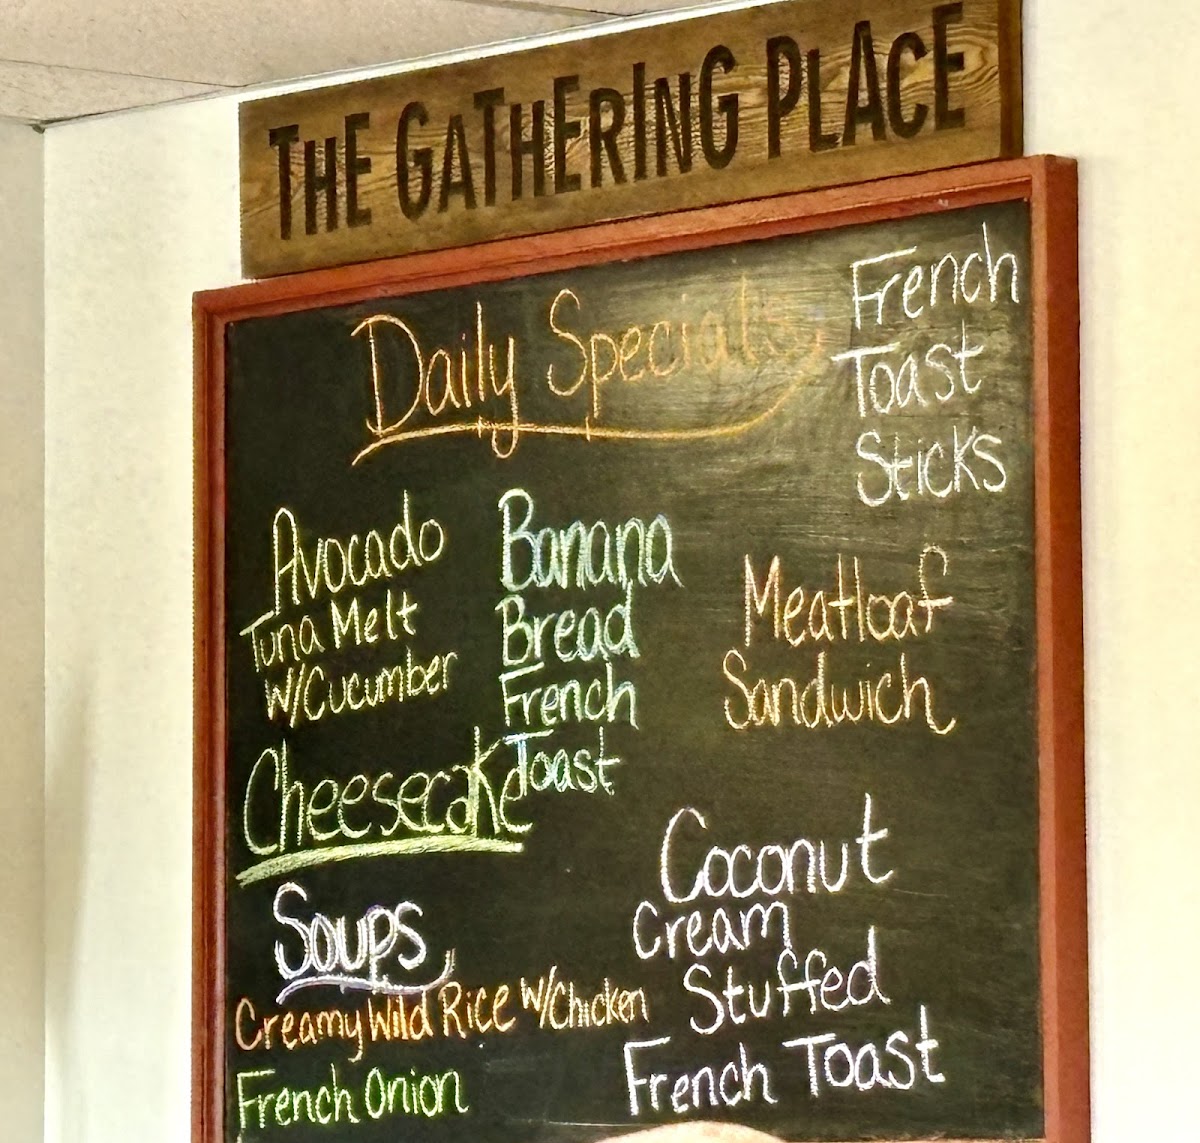 THE GATHERING PLACE
Daily Specials
French
Toast
Sticks
Avocado
Tuna Melt
w/Cucumber
Banana
Bread
French
Toast
Meatloaf
Sandwich
Cheesecake
Coconut
Cream
Stuffed
French Toast
Soups
Creamy Wild Rice w/Chicken
French Onion